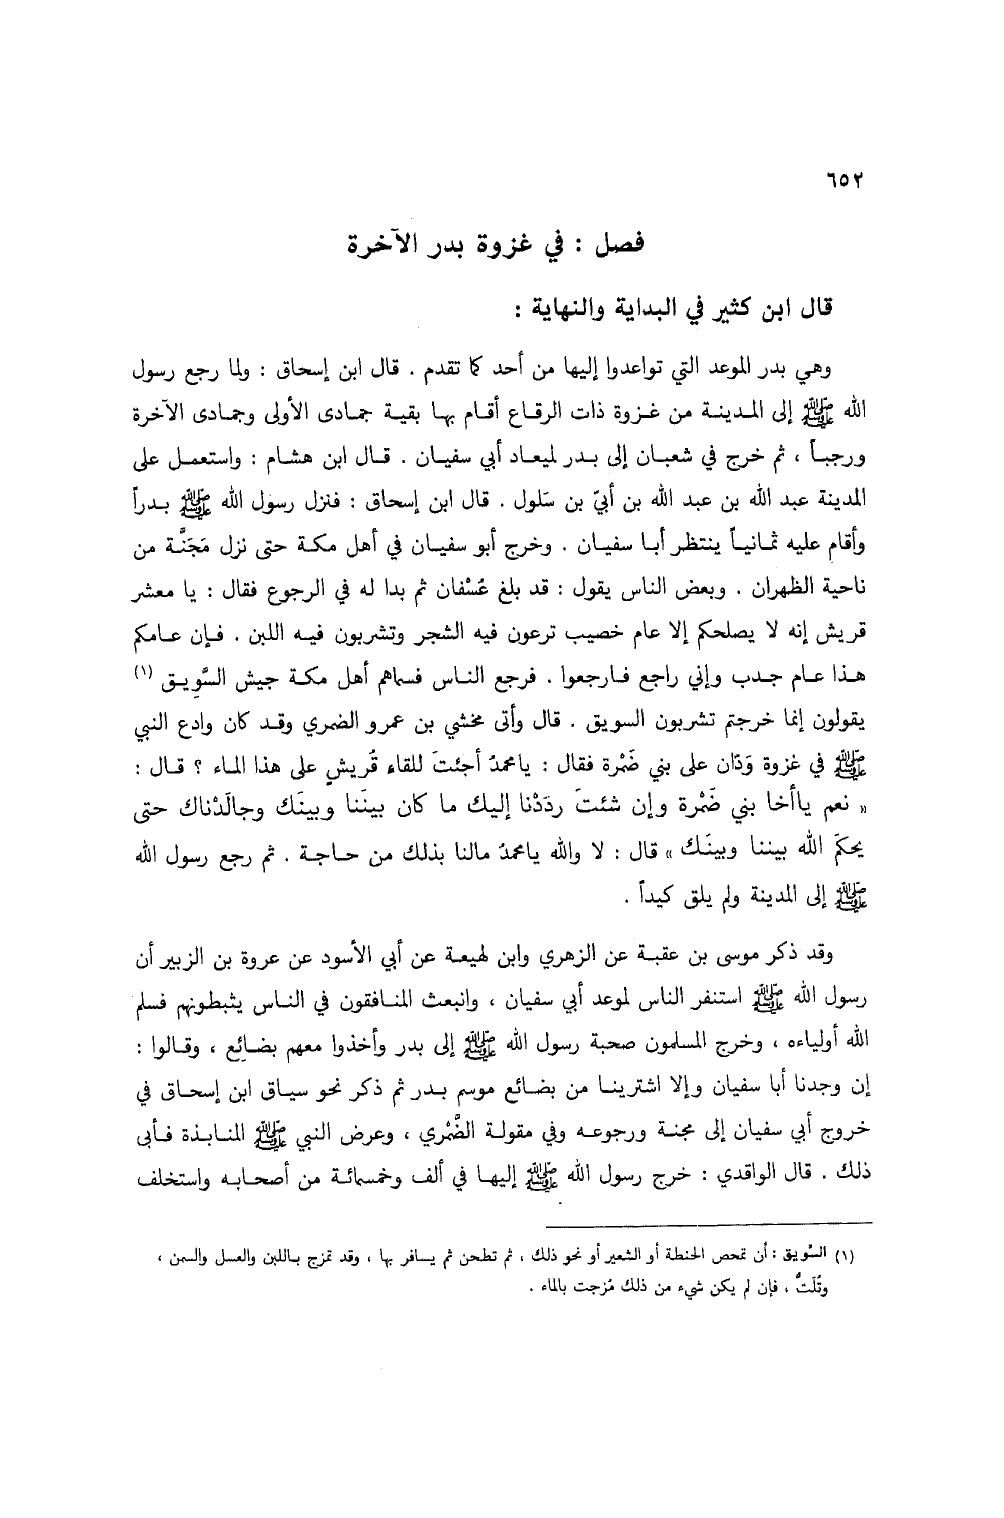 ٦٥٢
فصل : في غزوة بدر الآخرة
قال ابن كثير في البداية والنهاية :
وهي بدر الموعد التي تواعدوا إليها من أحد كما تقدم . قال ابن إسحاق : ولما رجع رسول
الله ﷺ إلى المدينة من غزوة ذات الرقاع أقام بها بقية جمادى الأولى وجمادى الآخرة
ورجباً ، ثم خرج في شعبان إلى بدر لميعاد أبي سفيان . قال ابن هشام : واستعمل على
المدينة عبد الله بن عبد الله بن أبيّ بن سَلول . قال ابن إسحاق : فنزل رسول الله ﷺ بدراً
وأقام عليه ثمانياً ينتظر أبا سفيان . وخرج أبو سفيان في أهل مكة حتى نزل مَجَنَّة من
ناحية الظهران . وبعض الناس يقول : قد بلغ عُسْفان ثم بدا له في الرجوع فقال : يا معشر
قريش إنه لا يصلحكم إلا عام خصيب ترعون فيه الشجر وتشربون فيه اللبن . فإن عامكم
هذا عام جدب وإني راجع فارجعوا . فرجع الناس فسماهم أهل مكة جيش السَّويق (١)
يقولون إنما خرجتم تشربون السويق . قال وأتى مخشي بن عمرو الضمري وقد كان وادع النبي
ﷺ في غزوة وَدّان على بني ضَمْرة فقال : يامحمدُ أجئتَ للقاء قُريشٍ على هذا الماء ؟ قال :
« نعم ياأخا بني ضَمْرة وإن شئتَ ردَدْنا إليك ما كان بيننا وبينَك وجالَدْناك حتى
يحكمَ الله بيننا وبينَك » قال : لا والله يامحمدُ مالنا بذلك من حاجة . ثم رجع رسول الله
ﷺ إلى المدينة ولم يلق كيداً .
وقد ذكر موسى بن عقبة عن الزهري وابن لهيعة عن أبي الأسود عن عروة بن الزبير أن
رسول الله ﷺ استنفر الناس لموعد أبي سفيان ، وانبعث المنافقون في الناس يثبطونهم فسلم
الله أولياءه ، وخرج المسلمون صحبة رسول الله ﷺ إلى بدر وأخذوا معهم بضائع ، وقالوا :
إن وجدنا أبا سفيان وإلا اشترينا من بضائع موسم بدر ثم ذكر نحو سياق ابن إسحاق في
خروج أبي سفيان إلى مجنة ورجوعه وفي مقولة الضَّمْري ، وعرض النبي ﷺ المنابذة فأبى
ذلك . قال الواقدي : خرج رسول الله ﷺ إليها في ألف وخمسمائة من أصحابه واستخلف
(١) السَّويق : أن تحمص الحنطة أو الشعير أو نحو ذلك ، ثم تطحن ثم يسافر بها ، وقد تمزج باللبن والعسل والسمن ،
وتُلَتُّ ، فإن لم يكن شيء من ذلك مُزجت بالماء .